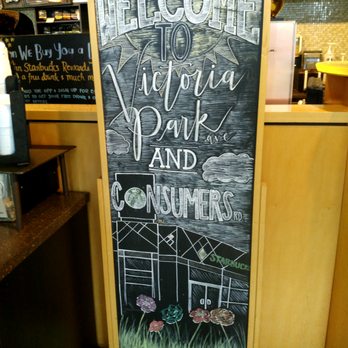 WELCOME
TO
Victoria
Park ave
AND
CONSUMERS RD
STARBUCKS
We Buy You a
Starbucks Rewards
a free drink & much m